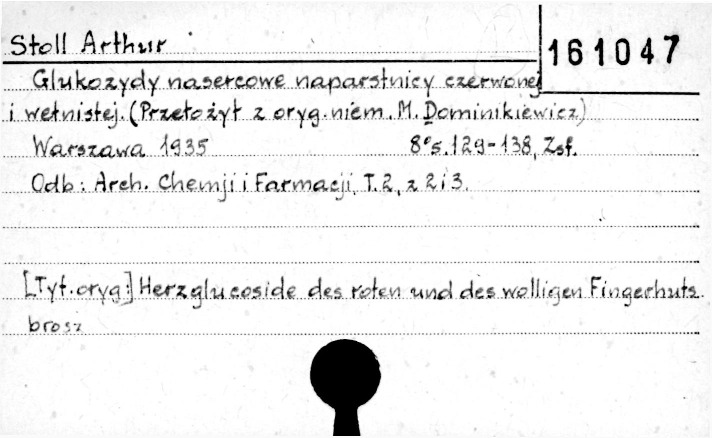 Stoll Arthur
161047
Glukozydy nasercowe naparstnicy czerwonej
i wełnistej. (Przełożył z oryg. niem. M. Dominikiewicz)
Warszawa 1935 8° s. 129-138, Zsf.
Odb: Arch. Chemji i Farmacji, T. 2, z 2 i 3.
[Tyt. oryg:] Herzglucoside des roten und des wolligen Fingerhuts.
brosz